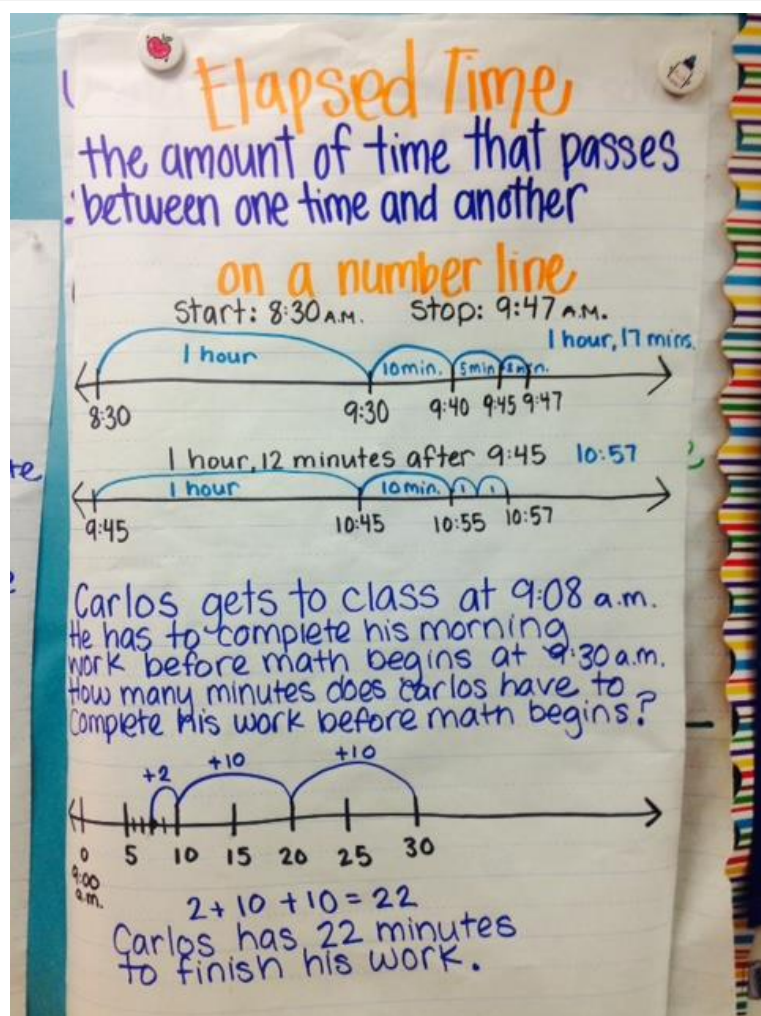 Elapsed Time
the amount of time that passes
between one time and another
on a number line
Start: 8:30 A.M. Stop: 9:47 A.M.
1 hour, 17 mins.
1 hour 10 min. 5 min
8:30 9:30 9:40 9:45 9:47
1 hour, 12 minutes after 9:45 10:57
1 hour 10 min. 1 1
9:45 10:45 10:55 10:57
Carlos gets to class at 9:08 a.m.
He has to complete his morning
work before math begins at 9:30 a.m.
How many minutes does Carlos have to
complete his work before math begins?
+2 +10 +10
0 5 10 15 20 25 30
9:00
a.m.
2 + 10 + 10 = 22
Carlos has 22 minutes
to finish his work.